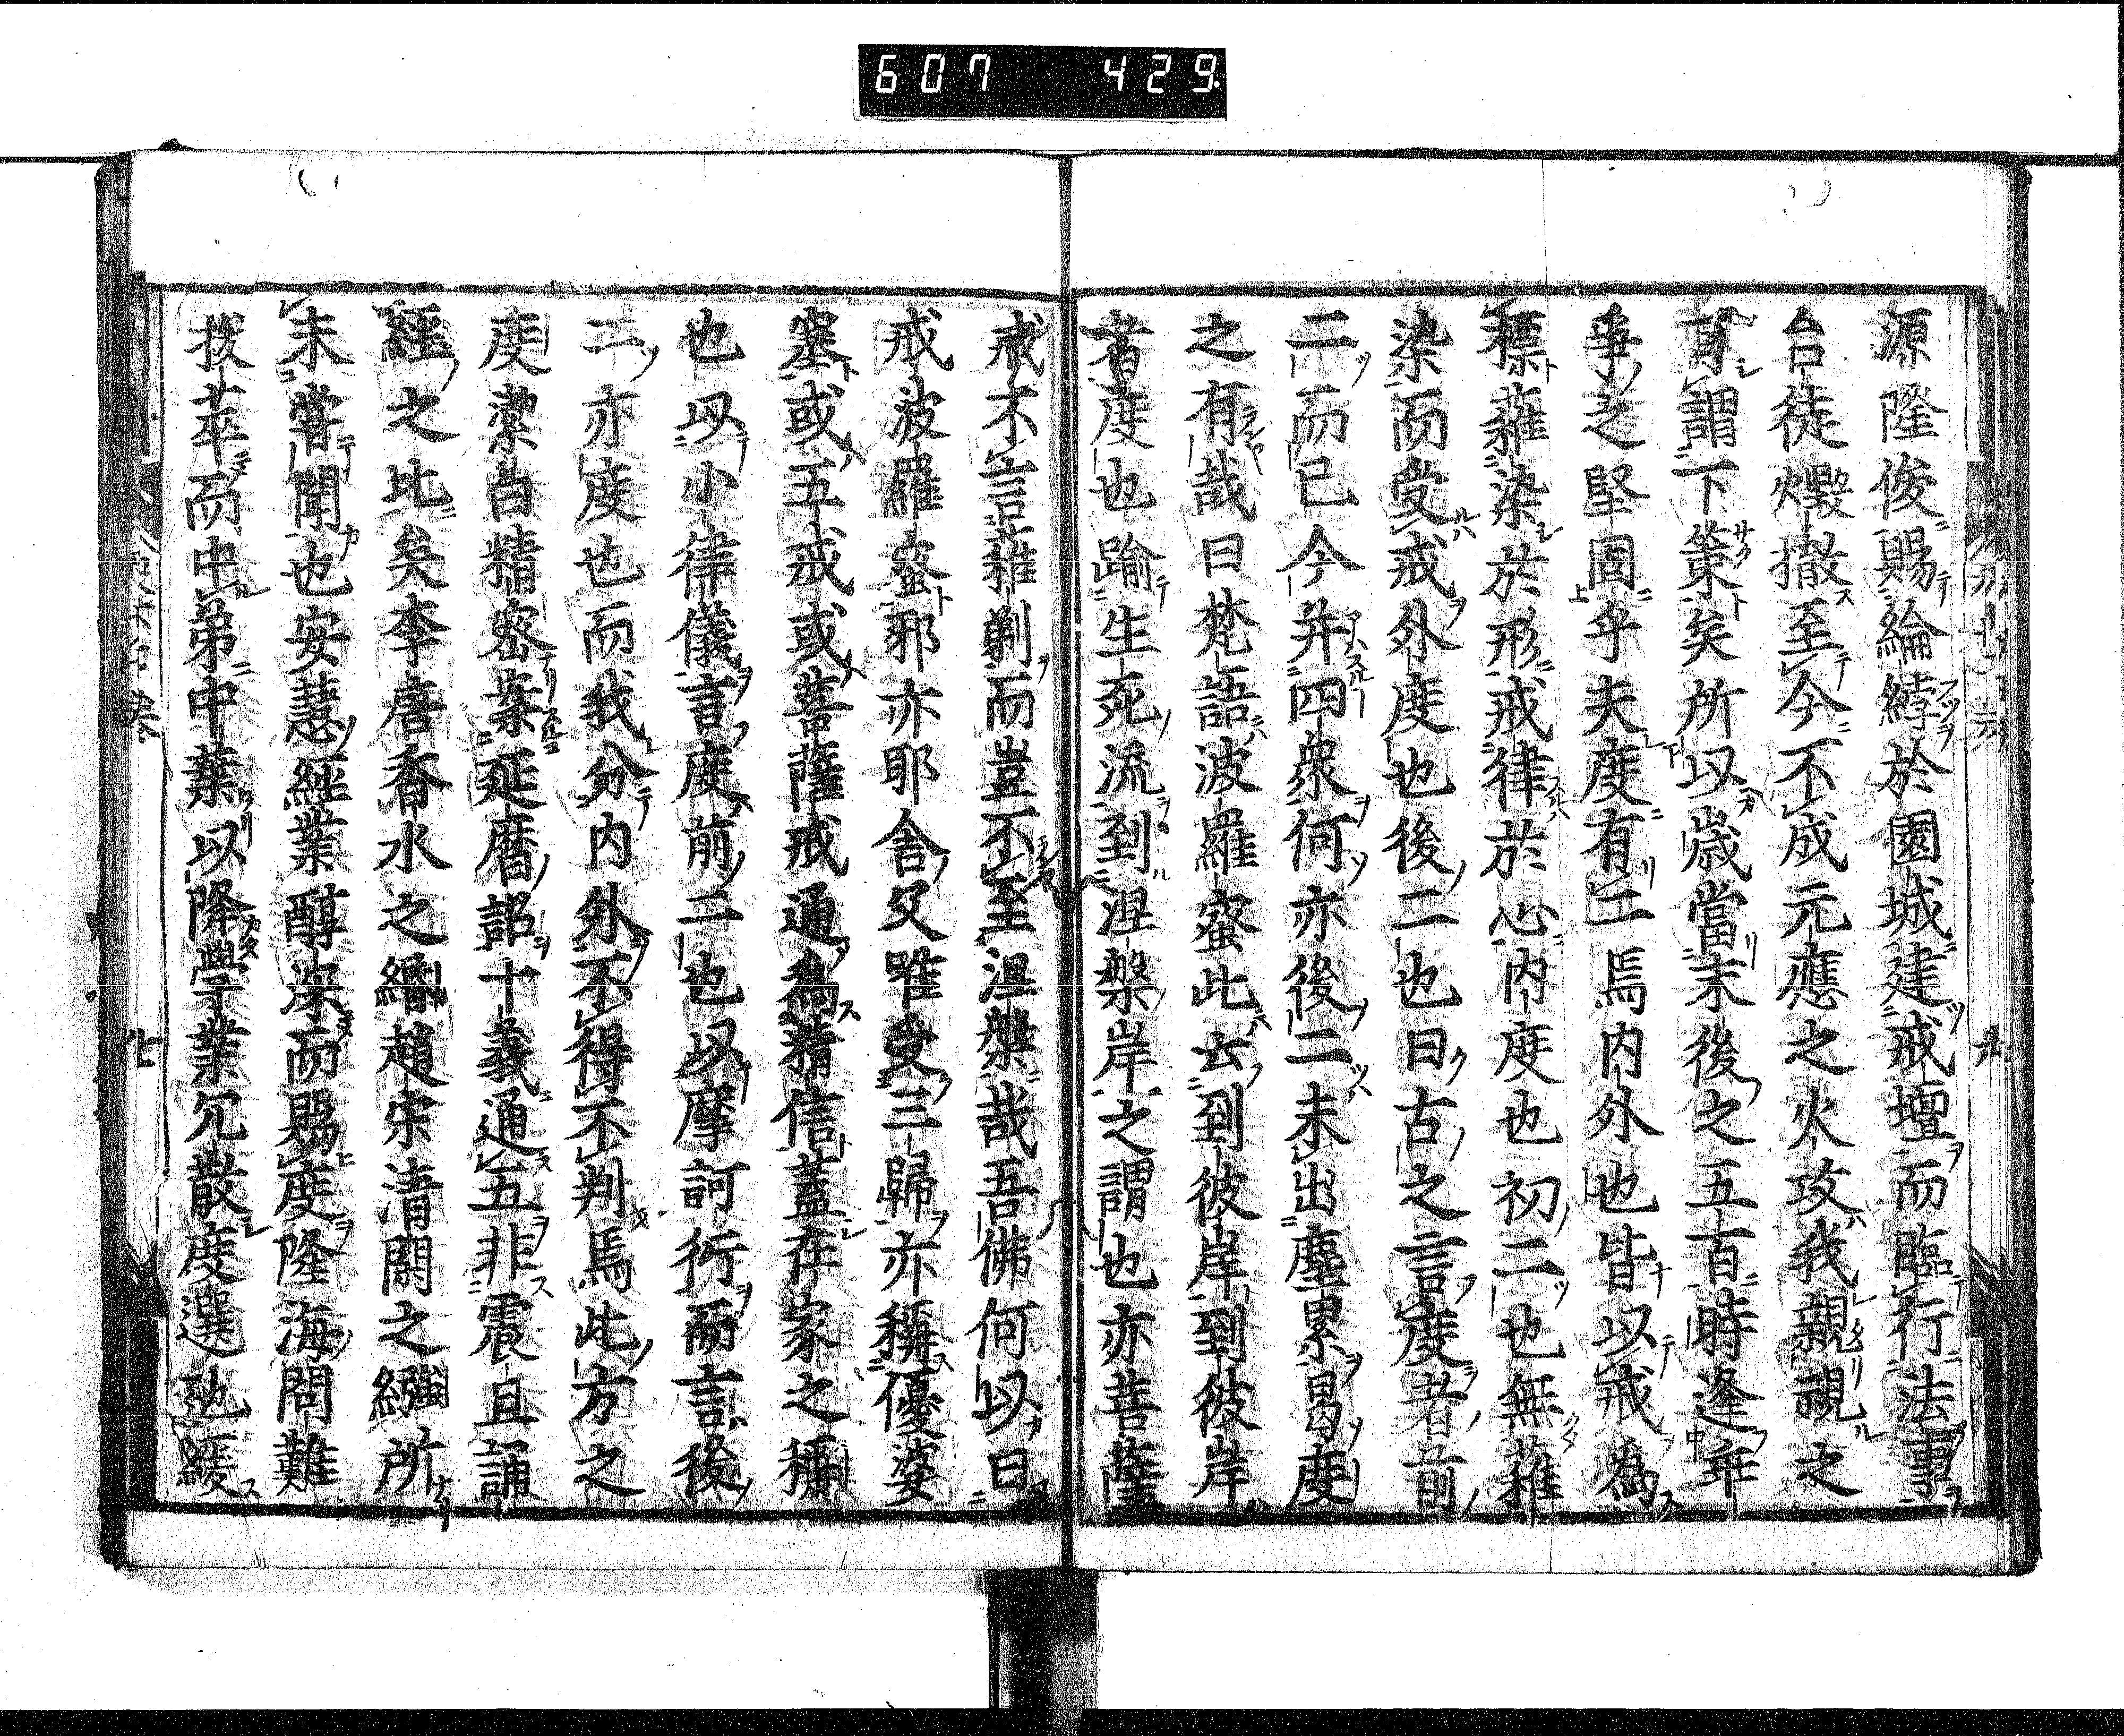 607 429
源隆俊賜綸綍於園城建戒壇而臨行法事
台徒燬撤至今不成元應之火攻我親視之
育謂下策矣所以歳當末後之五百時逢年
爭之堅固乎夫度有二焉内外也皆以戒為
標薙染於形戒律於心内度也初二也無薙
染而受戒外度也後二也曰古之言度者前
二而已今并四衆何亦後二未出塵累曷度
之有哉曰梵語波羅蜜此云到彼岸到彼岸
者度也踰生死流到涅槃岸之謂也亦菩薩
戒不言薙剃而豈不至涅槃哉吾佛何以曰
戒波羅蜜邪亦耶舎父唯受三歸亦稱優婆
塞或五戒或菩薩戒通爲精信蓋在家之稱
也以小律儀言度前二也以摩訶衍而言後
二亦度也而我分内外不得不判焉此方之
度潔白精密葉延暦詔十義通五非震旦誦
經之比矣李唐香水之緡趙宋清閑之繈所
未嘗聞也安慧經業醇深而賜度隆海問難
拔萃而中弟中葉以降學業冗散度選也綾